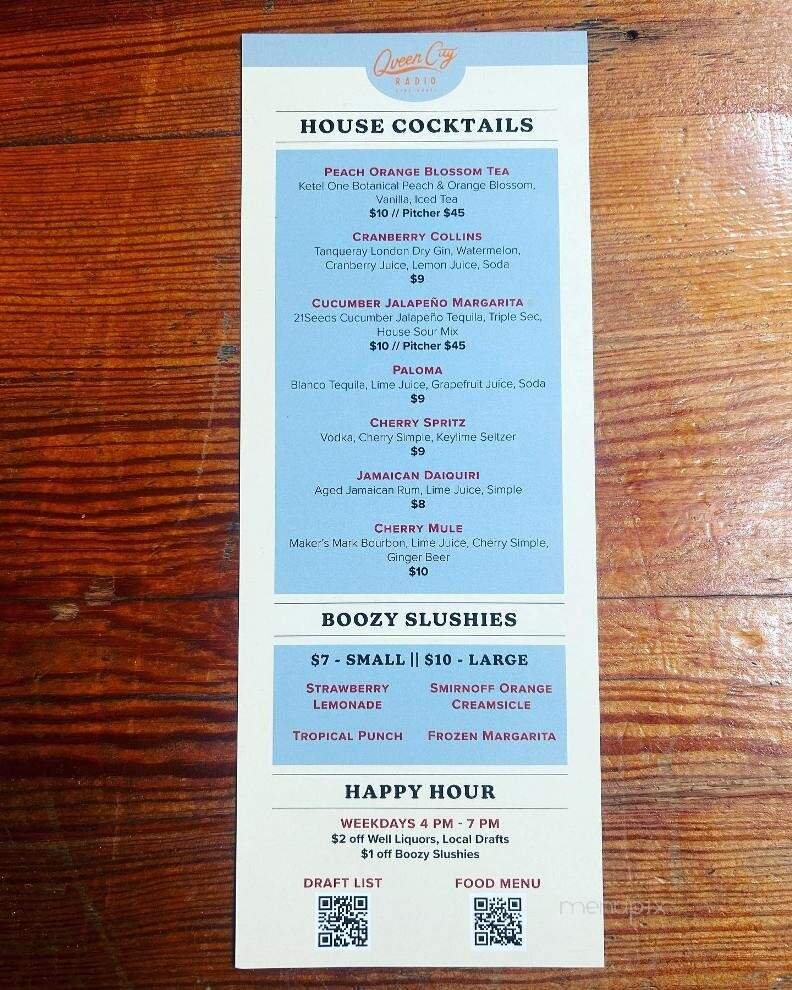 Queen City
RADIO
HOUSE COCKTAILS
PEACH ORANGE BLOSSOM TEA
Ketel One Botanical Peach & Orange Blossom,
Vanilla, Iced Tea
$10 // Pitcher $45
CRANBERRY COLLINS
Tanqueray London Dry Gin, Watermelon,
Cranberry Juice, Lemon Juice, Soda
$9
CUCUMBER JALAPEÑO MARGARITA
21Seeds Cucumber Jalapeño Tequila, Triple Sec,
House Sour Mix
$10 // Pitcher $45
PALOMA
Blanco Tequila, Lime Juice, Grapefruit Juice, Soda
$9
CHERRY SPRITZ
Vodka, Cherry Simple, Keylime Seltzer
$9
JAMAICAN DAIQUIRI
Aged Jamaican Rum, Lime Juice, Simple
$8
CHERRY MULE
Maker's Mark Bourbon, Lime Juice, Cherry Simple,
Ginger Beer
$10
BOOZY SLUSHIES
$7 - SMALL || $10 - LARGE
STRAWBERRY LEMONADE
SMIRNOFF ORANGE CREAMSICLE
TROPICAL PUNCH
FROZEN MARGARITA
HAPPY HOUR
WEEKDAYS 4 PM - 7 PM
$2 off Well Liquors, Local Drafts
$1 off Boozy Slushies
DRAFT LIST
FOOD MENU
menupix